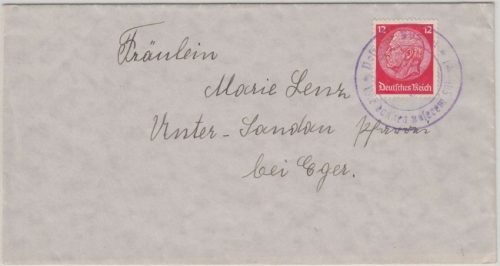 12 12
Deutsches Reich
Fräulein
Marie Lenz
Unter-Sandau
bei Eger.